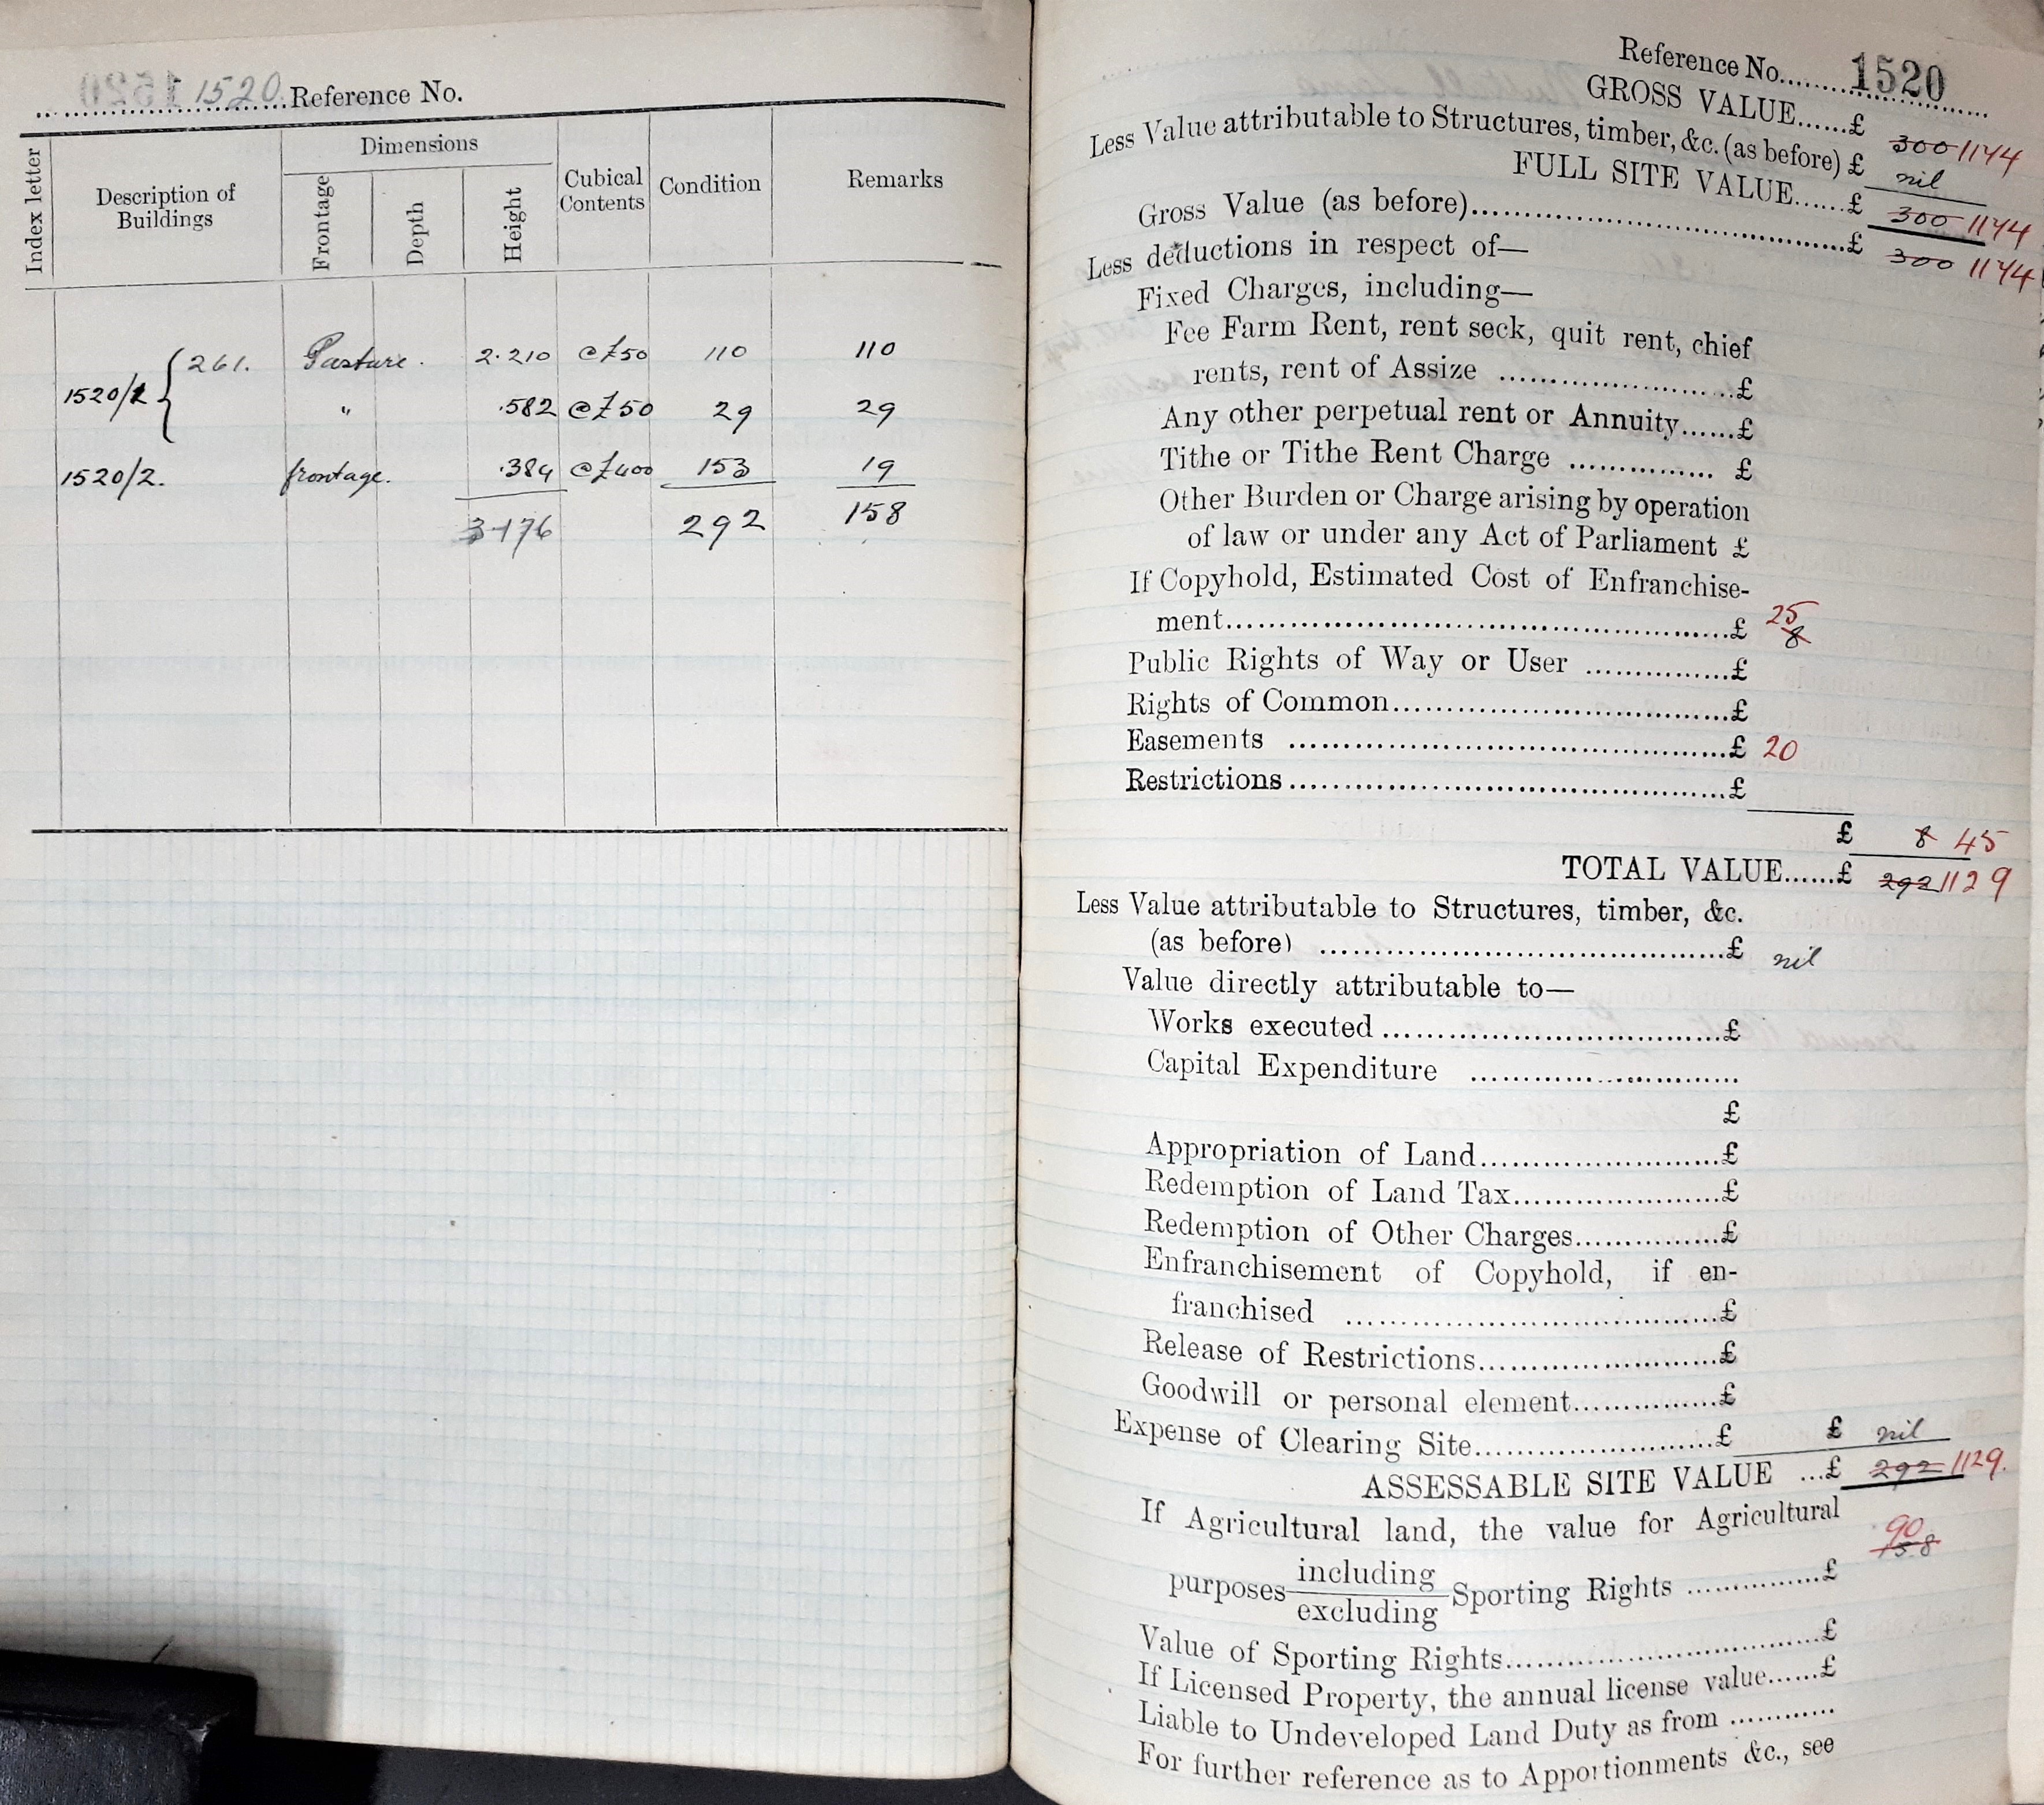 1520. Reference No.
Index letter
Description of
Buildings
Dimensions
Frontage
Depth
Height
Cubical
Contents
Condition
Remarks
1520/1 { 261. Pasture. 2.210 @£50 110 110
" .582 @£50 29 29
1520/2. frontage. .384 @£400 153 19
3.176 292 158
Reference No. 1520
GROSS VALUE......£ 300 1174
Less Value attributable to Structures, timber, &c. (as before) £ nil
FULL SITE VALUE......£ 300 1174
Gross Value (as before)......£ 300 1174
Less deductions in respect of—
Fixed Charges, including—
Fee Farm Rent, rent seck, quit rent, chief
rents, rent of Assize ......£
Any other perpetual rent or Annuity......£
Tithe or Tithe Rent Charge ...... £
Other Burden or Charge arising by operation
of law or under any Act of Parliament £
If Copyhold, Estimated Cost of Enfranchise-
ment......£ 25 8
Public Rights of Way or User ......£
Rights of Common......£
Easements ......£ 20
Restrictions......£
£ 8 45
TOTAL VALUE......£ 292 1129
Less Value attributable to Structures, timber, &c.
(as before) ......£ nil
Value directly attributable to—
Works executed ......£
Capital Expenditure ......
£
Appropriation of Land......£
Redemption of Land Tax......£
Redemption of Other Charges......£
Enfranchisement of Copyhold, if en-
franchised ......£
Release of Restrictions......£
Goodwill or personal element......£
Expense of Clearing Site......£ £ nil
ASSESSABLE SITE VALUE ...£ 292 1129.
If Agricultural land, the value for Agricultural
purposes including excluding Sporting Rights ......£ 90 158
Value of Sporting Rights......£
If Licensed Property, the annual license value......£
Liable to Undeveloped Land Duty as from ............
For further reference as to Apportionments &c., see